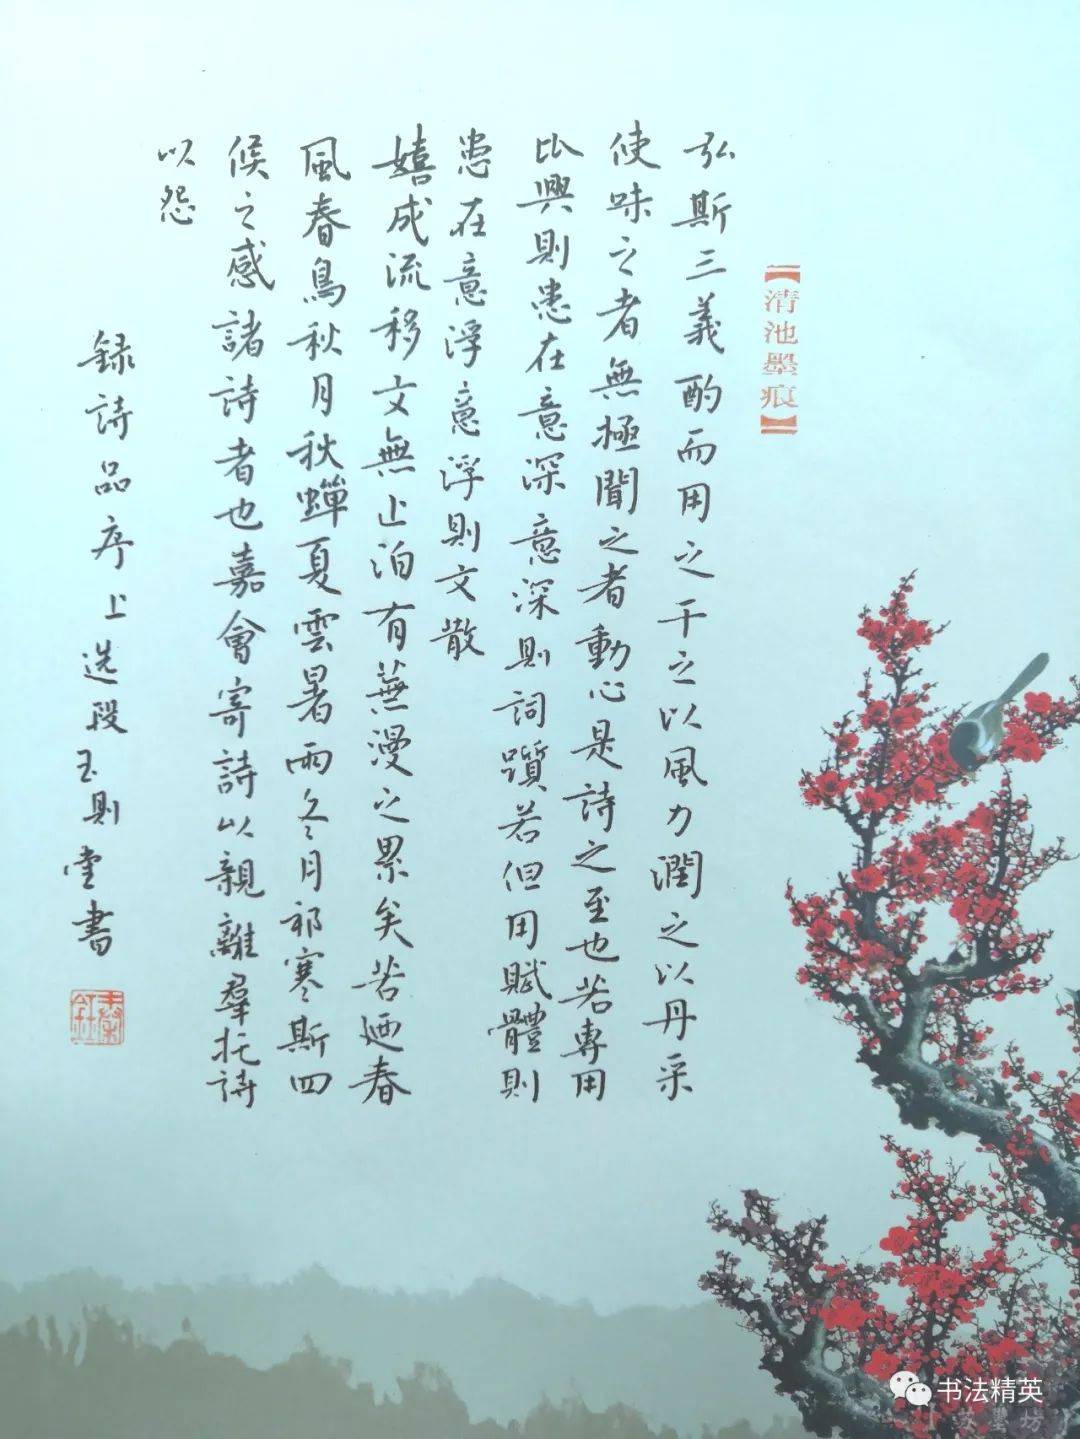 【清池墨痕】
弘斯三義酌而用之干之以風力潤之以丹采
使味之者無極聞之者動心是詩之至也若專用
比興則患在意深意深則詞躓若但用賦體則
患在意浮意浮則文散
嬉成流移文無止泊有蕪漫之累矣若迺春
風春鳥秋月秋蟬夏雲暑雨冬月祁寒斯四
候之感諸詩者也嘉會寄詩以親離羣托詩
以怨
録詩品序上选段玉則堂書
书法精英
墨坊